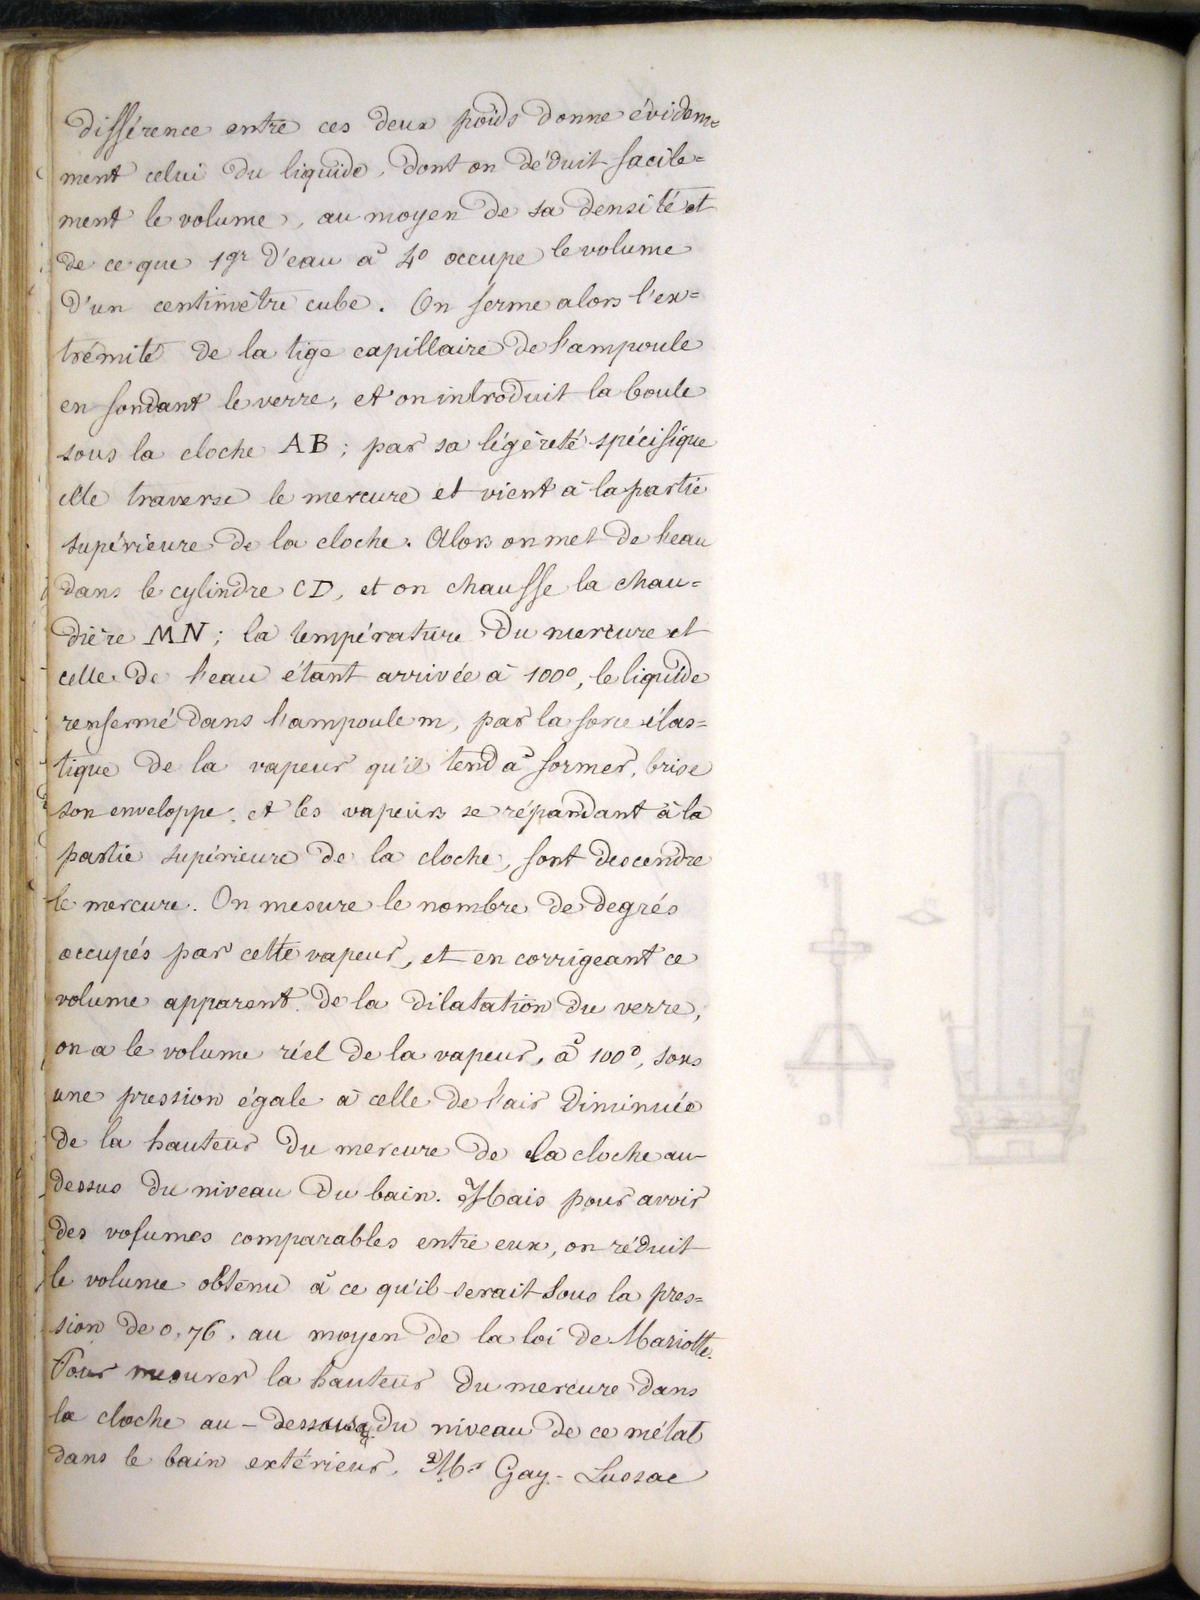 différence entre ces deux poids donne évidem=
ment celui du liquide, dont on déduit facile=
ment le volume, au moyen de sa densité et
de ce que 1gr d'eau à 4° occupe le volume
d'un centimètre cube. On ferme alors l'ex=
trémité de la tige capillaire de l'ampoule
en fondant le verre, et on introduit la boule
sous la cloche AB ; par sa légèreté spécifique
elle traverse le mercure et vient à la partie
supérieure de la cloche. Alors on met de l'eau
dans le cylindre CD, et on chauffe la chau=
dière MN ; la température du mercure et
celle de l'eau étant arrivée à 100°, le liquide
renfermé dans l'ampoule m, par la force élas=
tique de la vapeur qu'il tend à former, brise
son enveloppe, et les vapeurs se répandant à la
partie supérieure de la cloche, font descendre
le mercure. On mesure le nombre de degrés
occupés par cette vapeur, et en corrigeant ce
volume apparent de la dilatation du verre,
on a le volume réel de la vapeur, à 100°, sous
une pression égale à celle de l'air diminuée
de la hauteur du mercure de la cloche au-
dessus du niveau du bain. Mais pour avoir
des volumes comparables entre eux, on réduit
le volume obtenu à ce qu'il serait sous la pres=
sion de 0,76, au moyen de la loi de Mariotte.
Pour mesurer la hauteur du mercure dans
la cloche au-dessus du niveau de ce métal
dans le bain extérieur, Mr Gay-Lussac